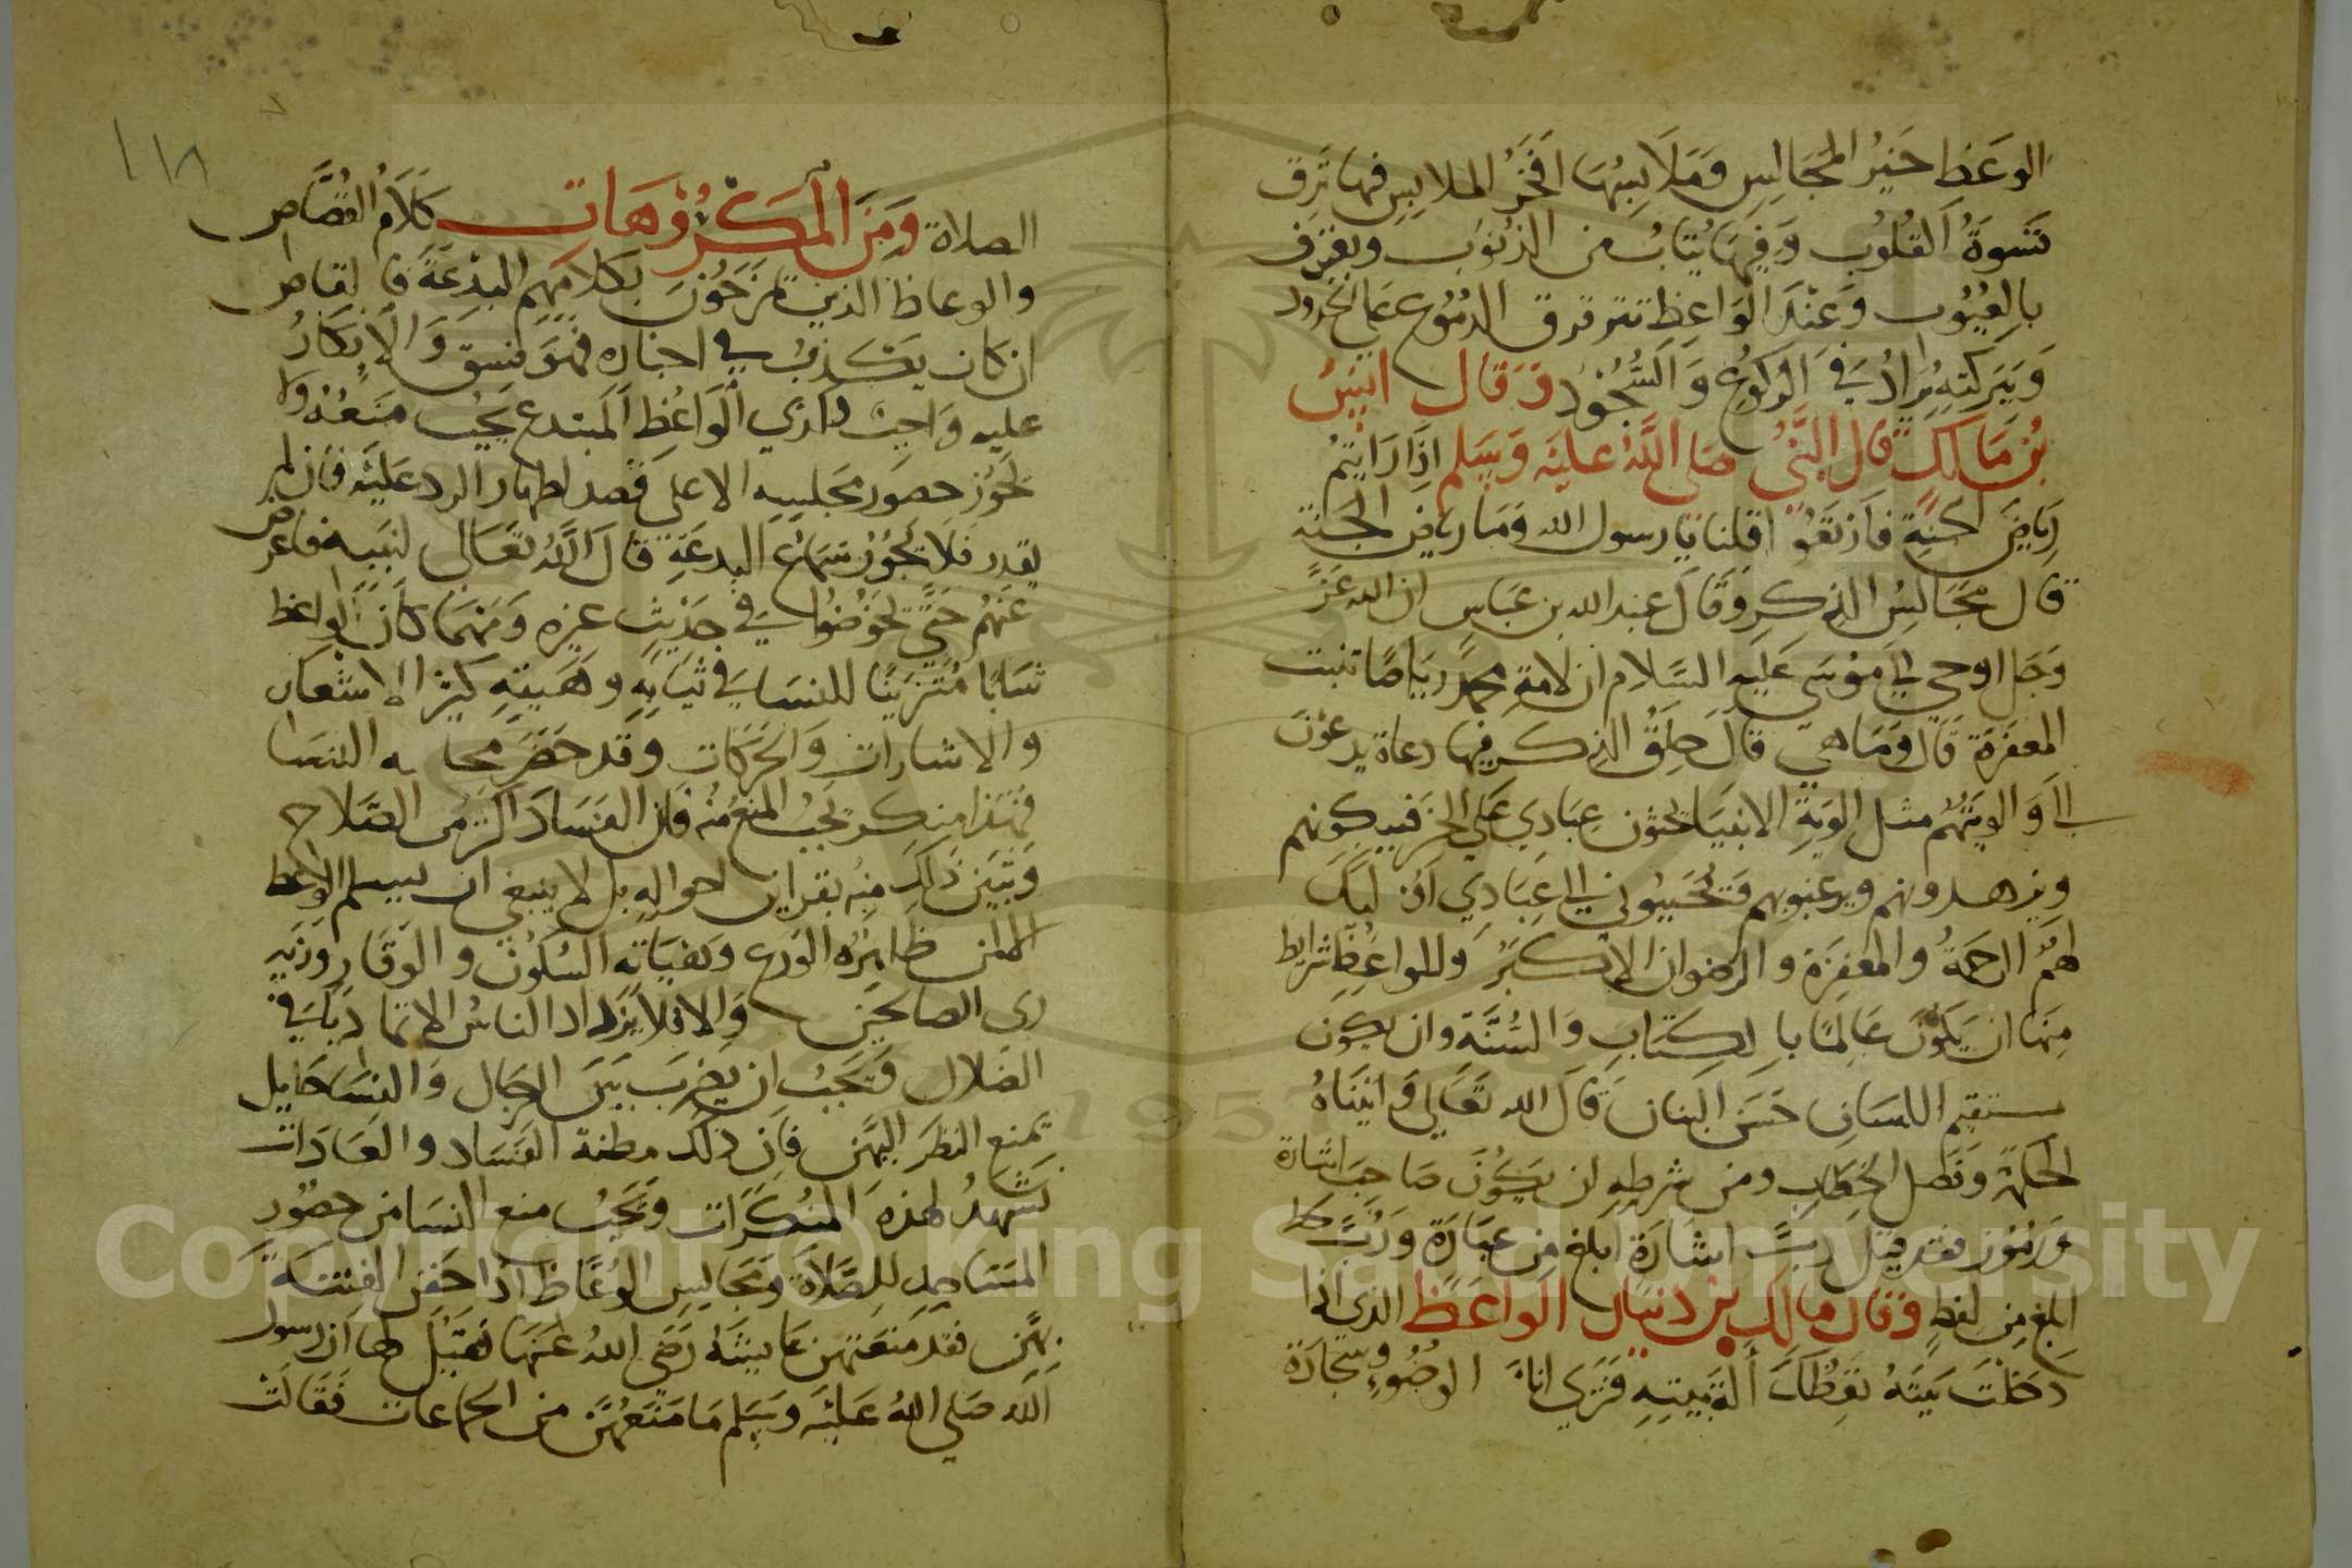 الوَعَظ خَيْرُ المجَالِسِ وَمَلَابِسُهَا افْخَرُ الملابِسِ فيها تَرِق
قسَوةُ القُلُوب وَفِيهَا يُتَابُ من الذنُوب ويعترف
بالعُيُوب وَعِنْدَ الوَاعِظ تترقرق الدمُوع عَلى الخدود
وَبَبَركتِهِ يُزادُ في الركوع وَالسُّجُود وَقال انس
بن مَالك قال النَّبي صَلى اللهُ عليْه وَسَلم اذا رَايتُم
رِيَاضَ الجنةِ فَارْتَعُوا قلنا يا رسول الله وَمَا رياض الجنة
قال مَجَالِسُ الذكرِ وقَالَ عبد الله بن عَبَاس ان الله عَزَّ
وَجَل اوحي الي مُوسَى عَليهِ السَّلام ان لامةِ محمدٍ ريَاضًا تنبت
المغفرَة قال وَمَا هي قَالَ حِلَقُ الذكر فيها دعاة يدعُونَ
الي وَالويتهُم مثل الويَةِ الانبيَا يحثون عِبَادي عَلي الخير فيذكرونهم
ويزهدونهم ويرغبوبهم وَيُحَببُوني الي عِبَادِي اوْليك
لهمُ الرحمةُ والمغفرَة والرضوان الاكبَرُ وللواعِظِ شرايط
مِنها ان يكُونَ عَالِمًا بالكتابِ وَالسُّنَّةِ وان يكون
مستقيم اللسَانِ حَسَنَ البَنان قَالَ الله تَعَالي وَاتينَاهُ
الحكمةَ وفصل الخِطَابِ ومن شرطِهِ ان يكُونَ صَاحبَ اشارة
وَرمُوز فقد قيلَ رُبَّ اشَارَة ابلغ مِن عبَارَة وَرُبَّ
ابلغ مِن لفظٍ وقال مالك بن دنيار الوَاعظ الذي اذا
دَخلتَ بَيتهُ تعِظُكَ الةُ بَيتِهِ فترَي اناءَ الوضُوءِ وسجادَة
الصلاة وَمِنَ المكْرُوهَات كَلَامُ القُصَّاص
والوعاظ الذين يمزجُونَ بكلامِهِم البدِعَةَ فالقاص
ان كان يَكذبُ في اخباره فهوَ فسق وَالانكارُ
عليه وَاجبٌ وَكذي الوَاعظِ المبتدع يَجبُ مَنعُهُ ولا
يجُوز حضورَ مجلسِهِ الا علي قصد اظهار الرد عَليْه فان لم
يقدر فلَا يجُوزُ سَماعُ البدعَةِ قالَ اللهُ تعَالى لنبيه فاعرض
عَنهُم حَتَّي يخوضُوا في حَديثٍ غيره وَمَهما كانَ الوَاعظ
شابًا مُتزينًا للنسَا في ثيَابِهِ وهَيئتِهِ كثير الاشعار
والاشاراتِ وَالحَركات وقد حَضرَ مجلسه النسَا
فهَذا منكر يَجبُ المنع مِنهُ فان الفسَادَ اكثر من الصَّلاح
وَيتبَيَن ذلِك مِنهُ بقراين احوالِهِ بل لا ينبغي ان يسلم الوعظ
الا لمن ظاهِرُه الورع وَهَيَاته السُكُونُ والوَقَار وزيه
زي الصالحين وَالا فلا يزداد الناسُ الا تماديًا في
الضلال وَيجبُ ان يضربَ بَينَ الرجال وَالنسَا حَايل
يمنع النظرَ اليهنَّ فان ذلك مظنة الفسَاد والعَادات
تشهدُ لهذه المنكرَات وَيَجبُ منع النسَا من حضورِ
المسَاجدِ للصَّلاة وَمجَالِسِ الوُعاظِ اذا خَفِن الفتنَة
بهنَّ فقد مَنعَتهن عَايشة رَضي اللهُ عَنهَا فقِيلَ لها ان رسول
الله صَلي اللهُ عَليْه وسَلم مَا مَنعَهُنَّ من الجماعات فَقَالتْ